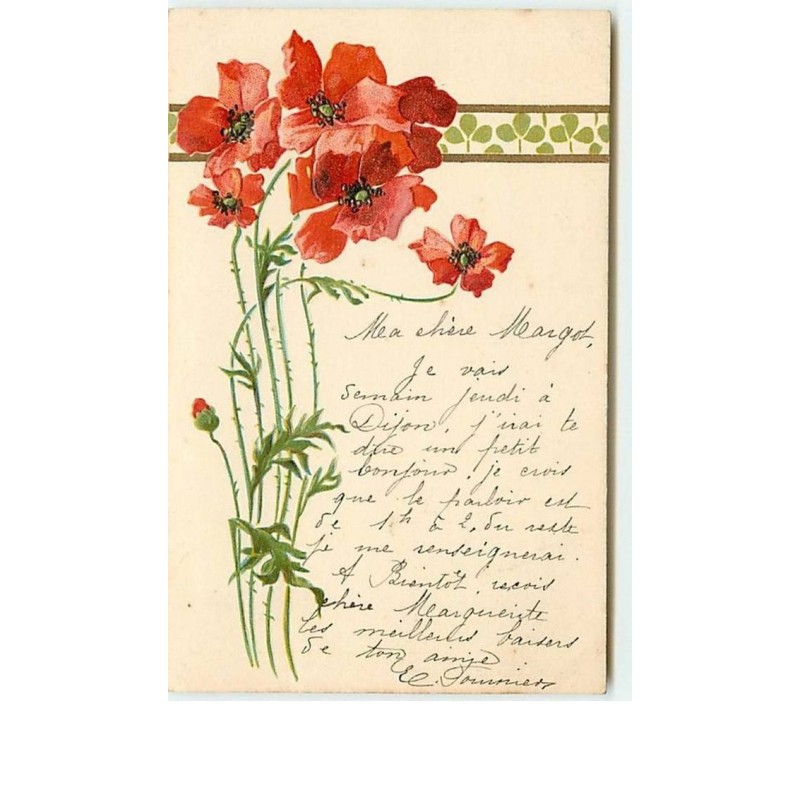 Ma chère Margot,
Je vais
demain jeudi à
Dijon, j'irai te
dire un petit
bonjour, je crois
que le parloir est
de 1h à 2, du reste
je me renseignerai.
A Bientôt, reçois
chère Marguerite
les meilleurs baisers
de ton amie